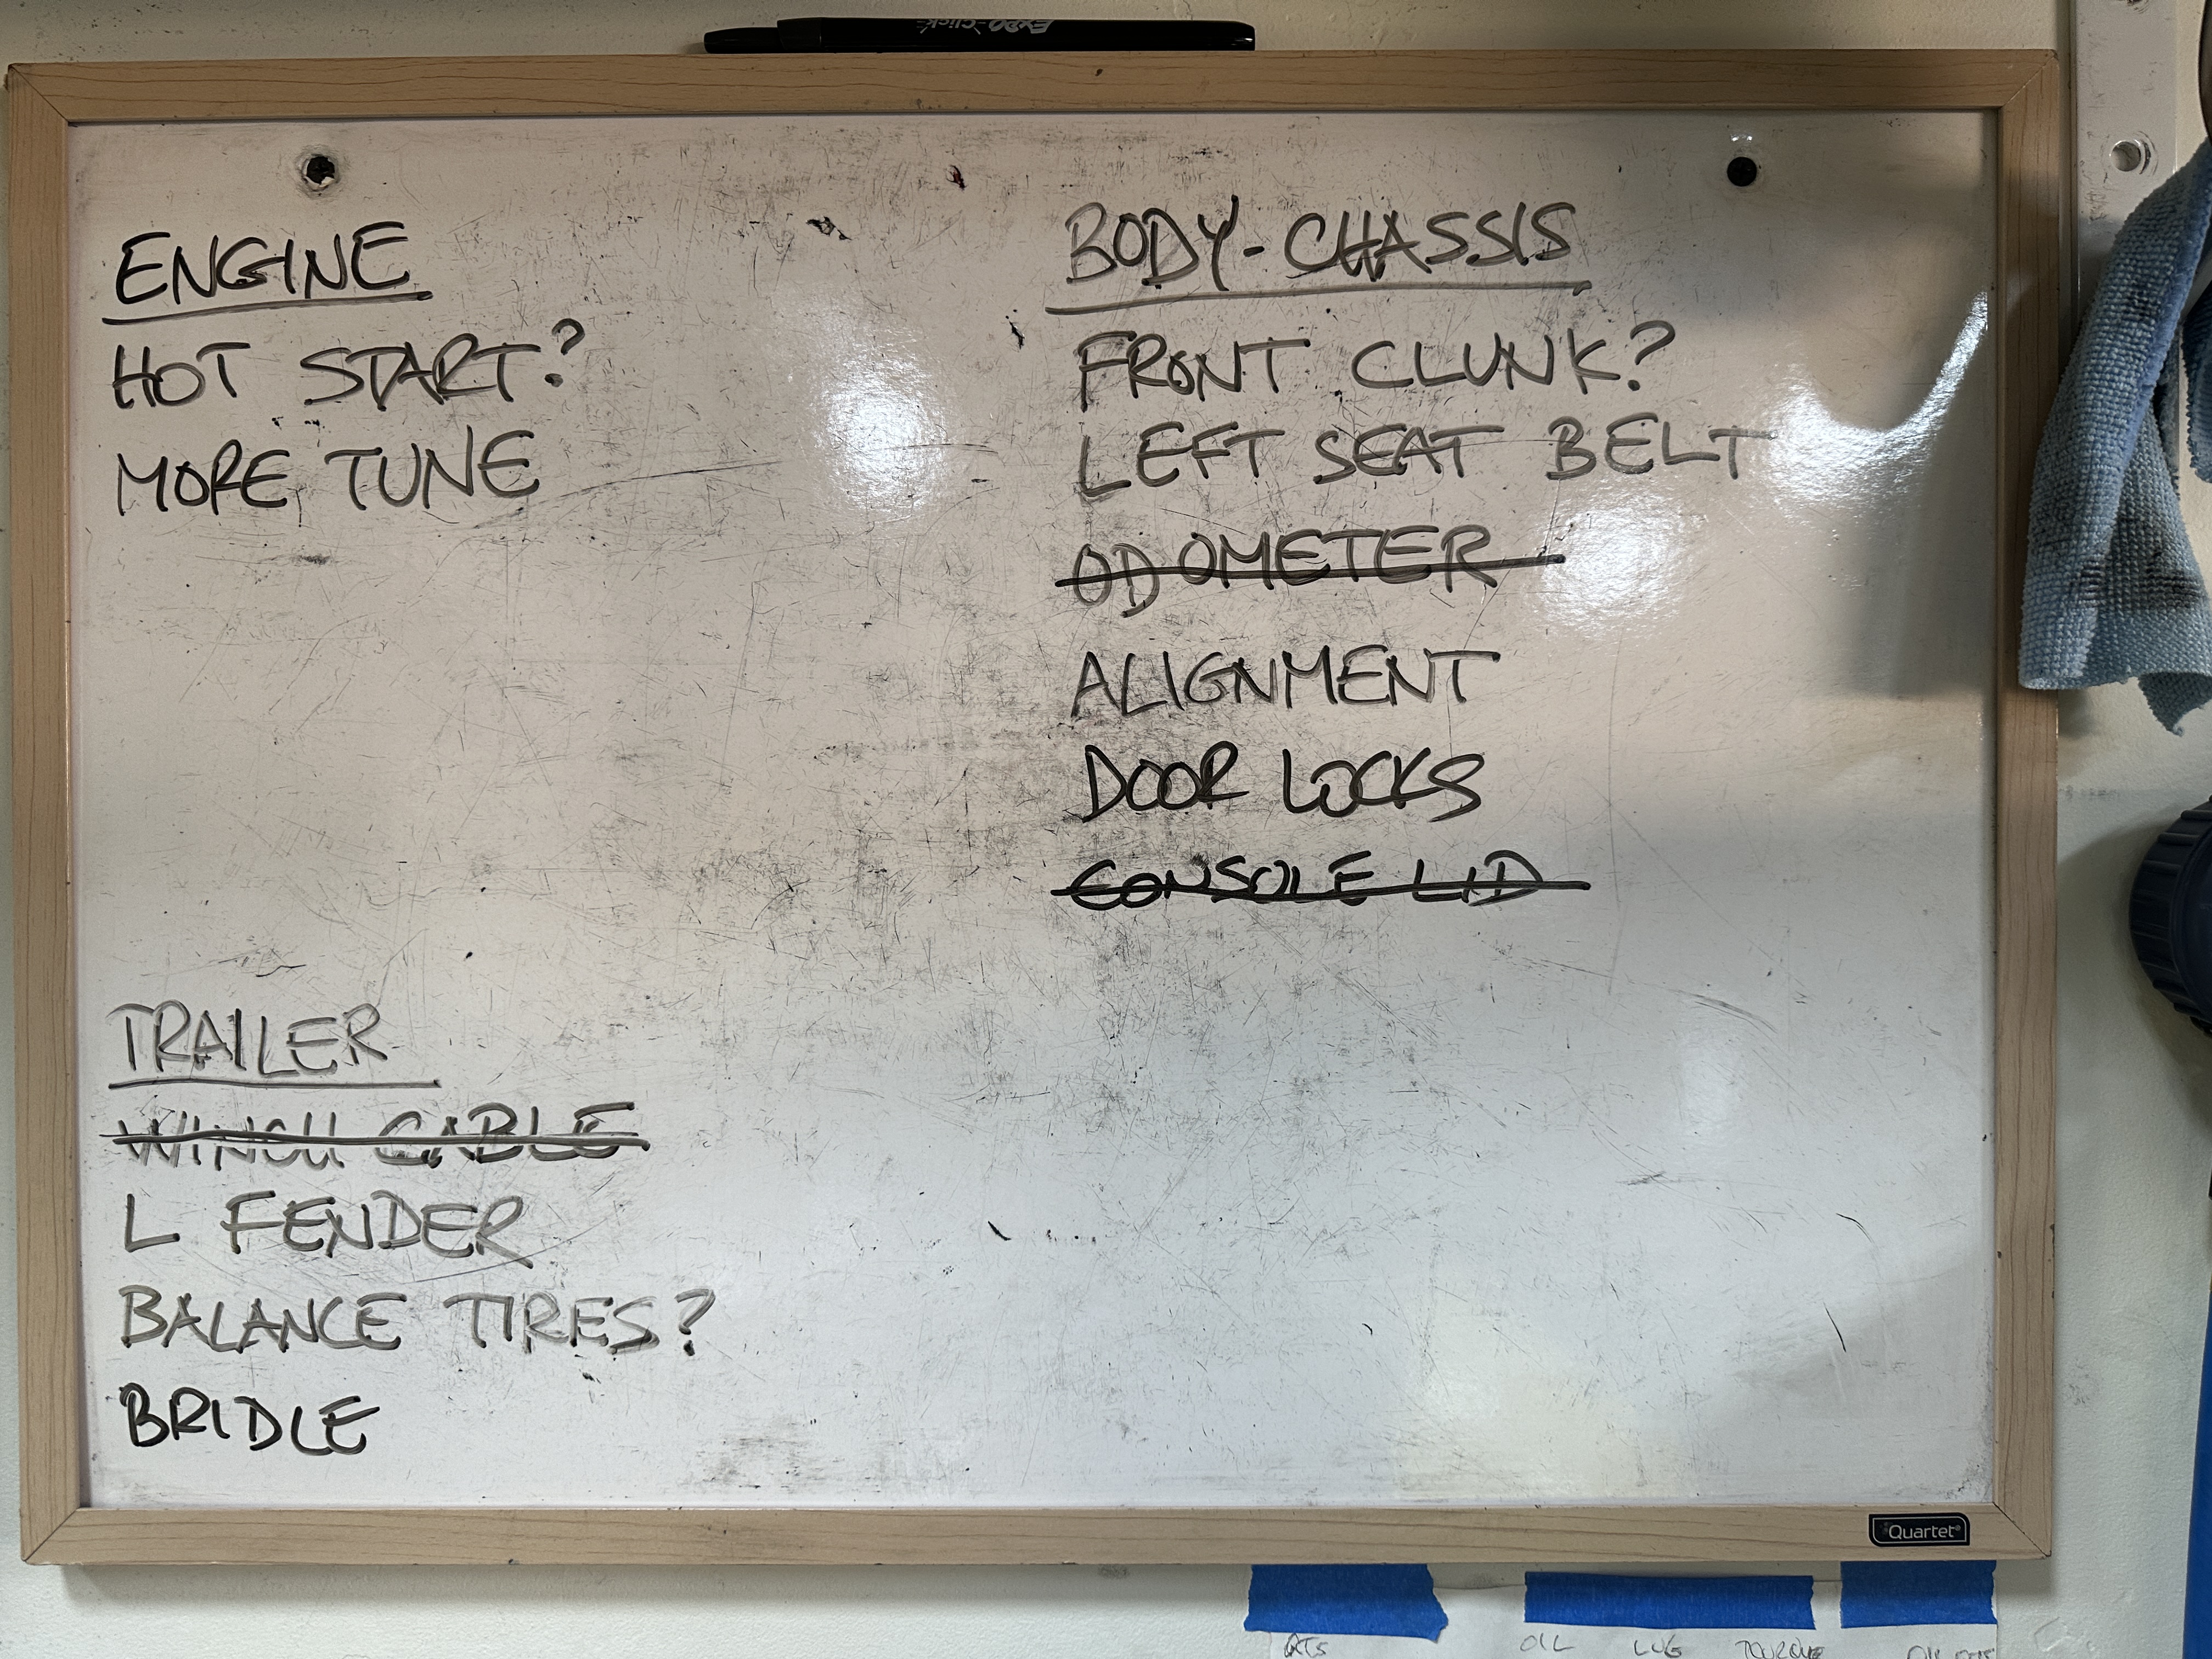 EXPO Click
ENGINE
HOT START?
MORE TUNE
BODY-CHASSIS
FRONT CLUNK?
LEFT SEAT BELT
ODOMETER
ALIGNMENT
DOOR LOCKS
CONSOLE LID
TRAILER
WINCH CABLE
L FENDER
BALANCE TIRES?
BRIDLE
Quartet
QTS OIL LUG TORQUE